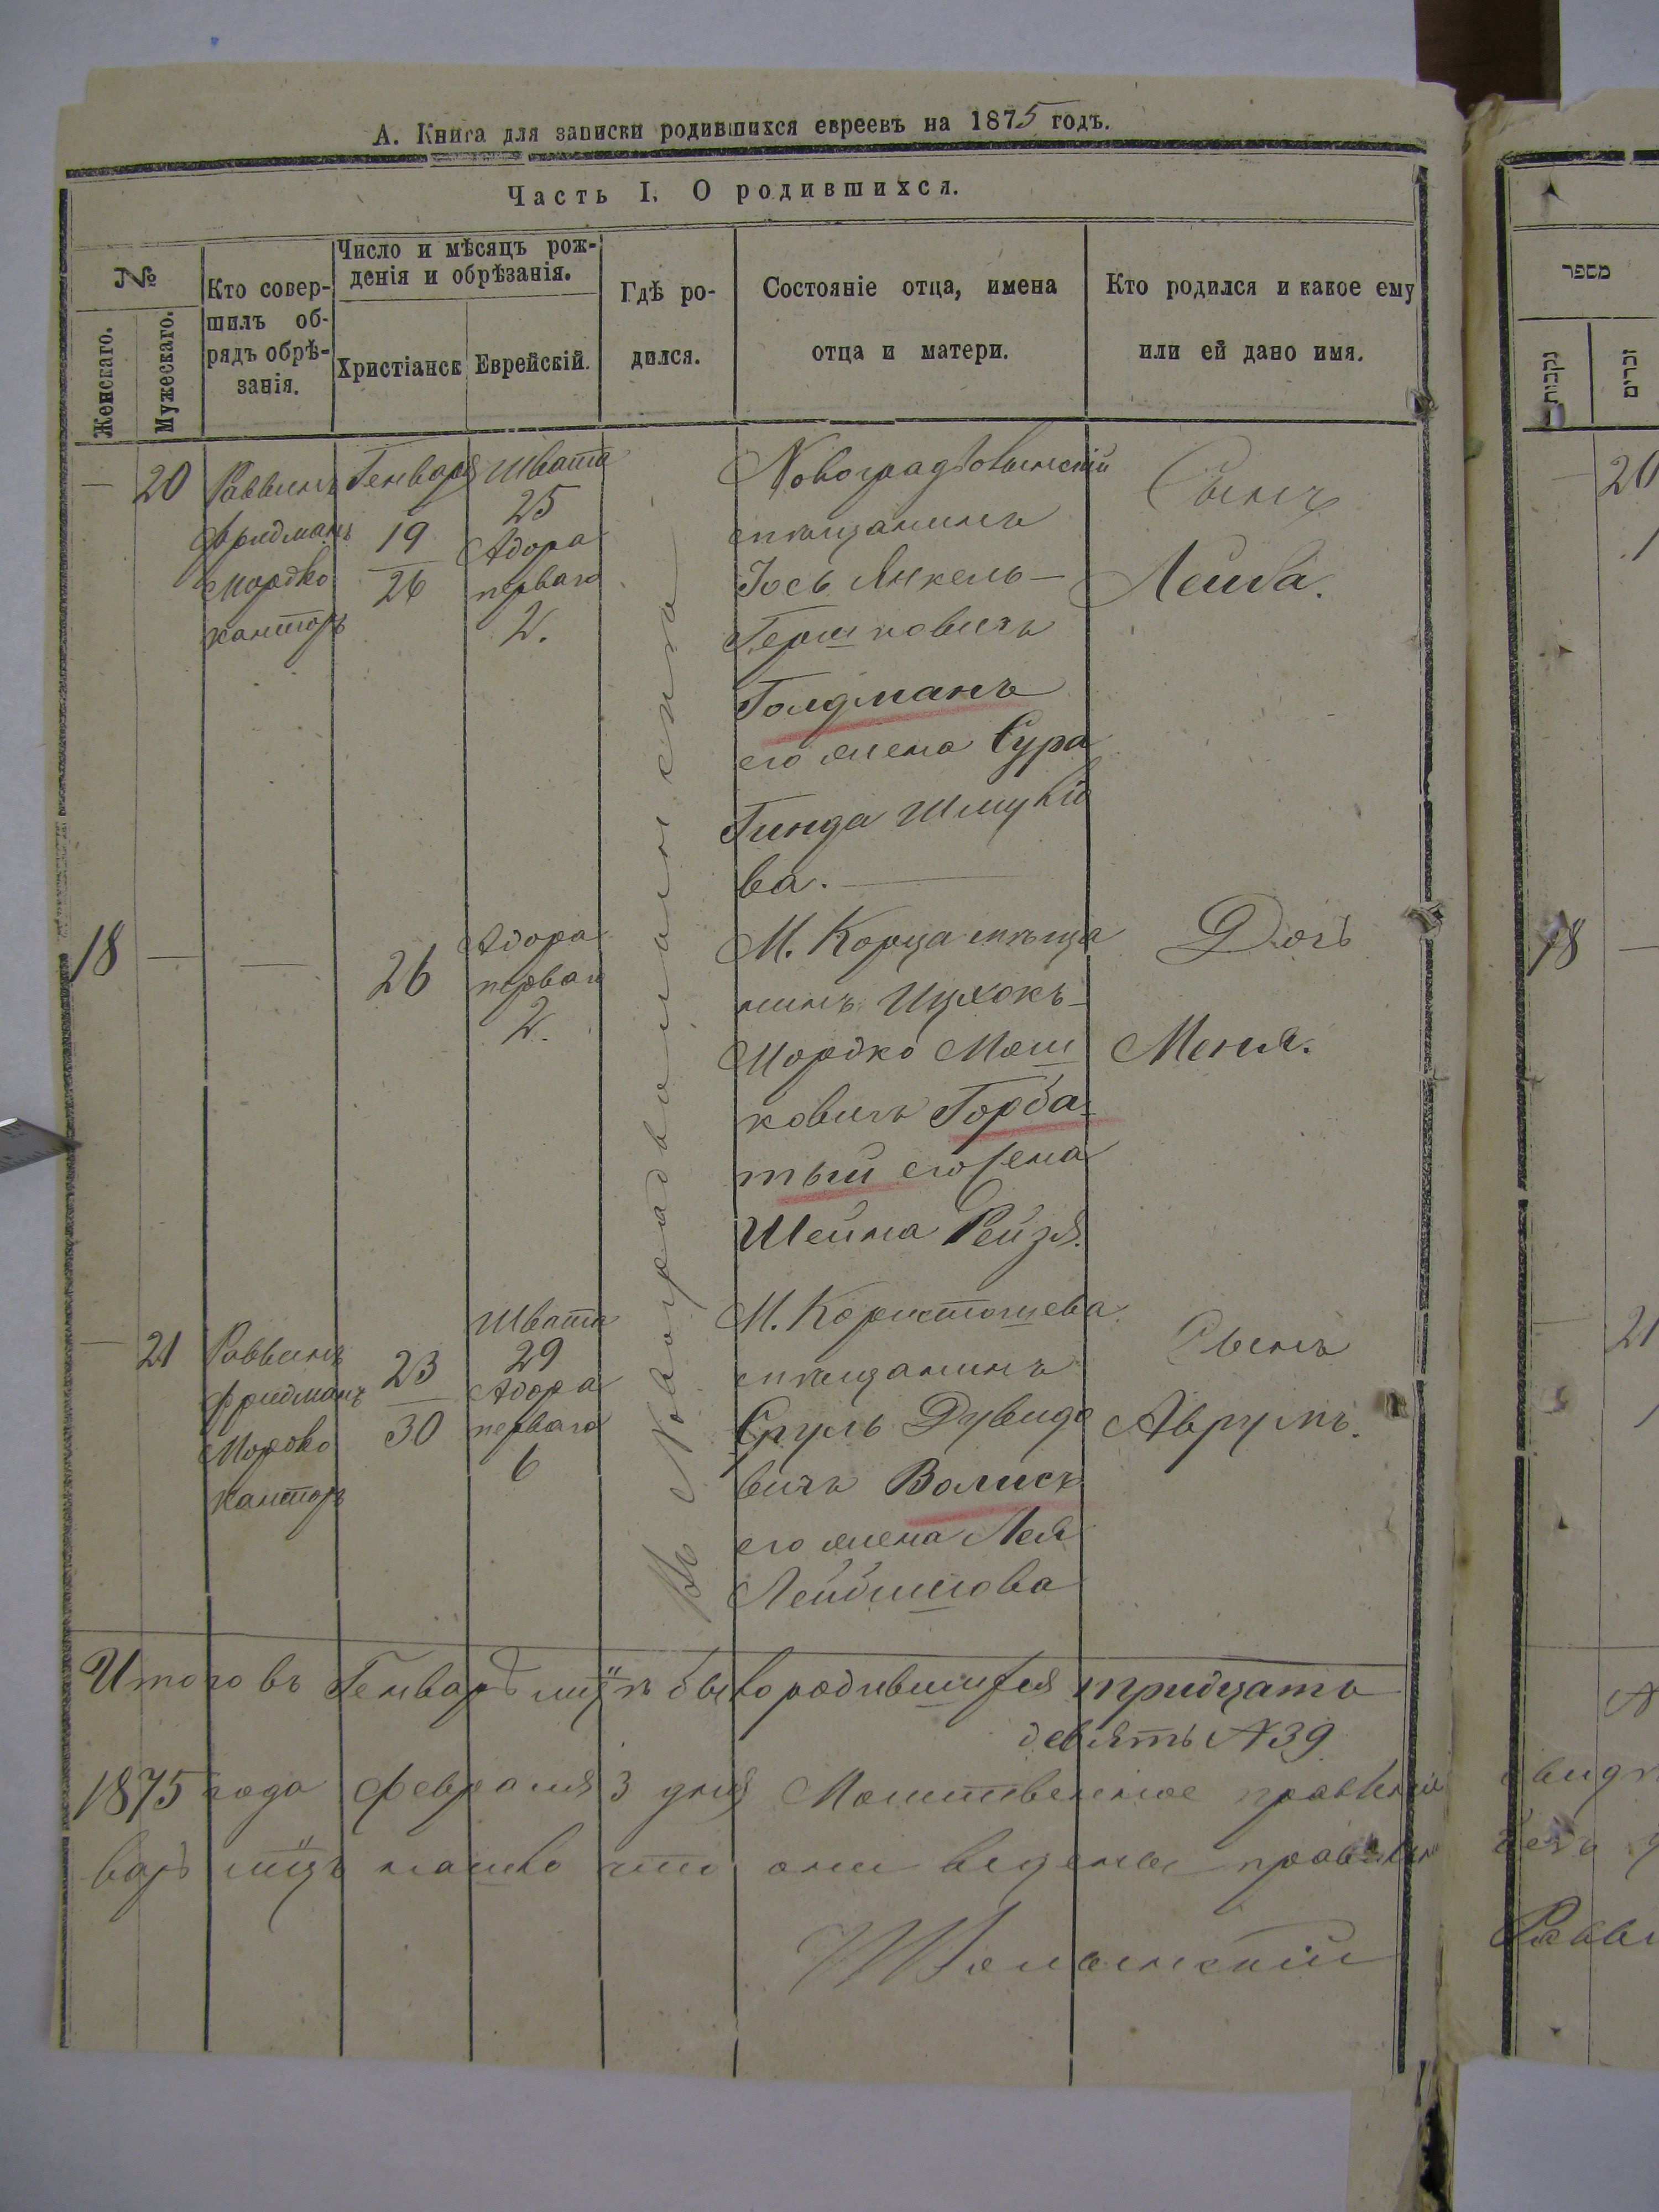 А. Книга для записки родившихся евреевъ на 1875 годъ.
Часть I. О родившихся.
№
Женскаго.
Мужескаго.
Кто совер-
шилъ об-
рядъ обрѣ-
занія.
Число и мѣсяцъ рож-
денія и обрѣзанія.
Христіанск
Еврейскій.
Гдѣ ро-
дился.
Состояніе отца, имена
отца и матери.
Кто родился и какое ему
или ей дано имя.
— 20
Раввинъ
Фридманъ
Мордко
канторъ
Генваря
19
26
Швата
25
Адора
перваго
2.
Въ Новоградволынскѣ
Новоградволынскій
мѣщанинъ
Іось Янкель —
Гершковичъ
Голдманъ
его жена Сура
Гинда
ва. —
Сынъ
Лейба.
18 — —
26
Адора
перваго
2.
М. Корца мѣща
нинъ Ицхокъ —
Мордко Мош
ковичъ Горба-
тый его жена
Шейна Рейзя.
Дочь
Меня.
— 21
Раввинъ
Фридманъ
Мордко
канторъ
23
30
Швата
29
Адора
перваго
6
М. Користошева
мѣщанинъ
Сруль Дувидо
вичъ Волисъ
его жена Лея
Лейбишова
Сынъ
Аврумъ.
Итого въ Генварѣ мцѣ было родившихся тридцать
девять № 39
1875 года февраля 3 дня
варь мцъ нашло что они ведены
מספר
נקבות
זכרים
20
18 —
21